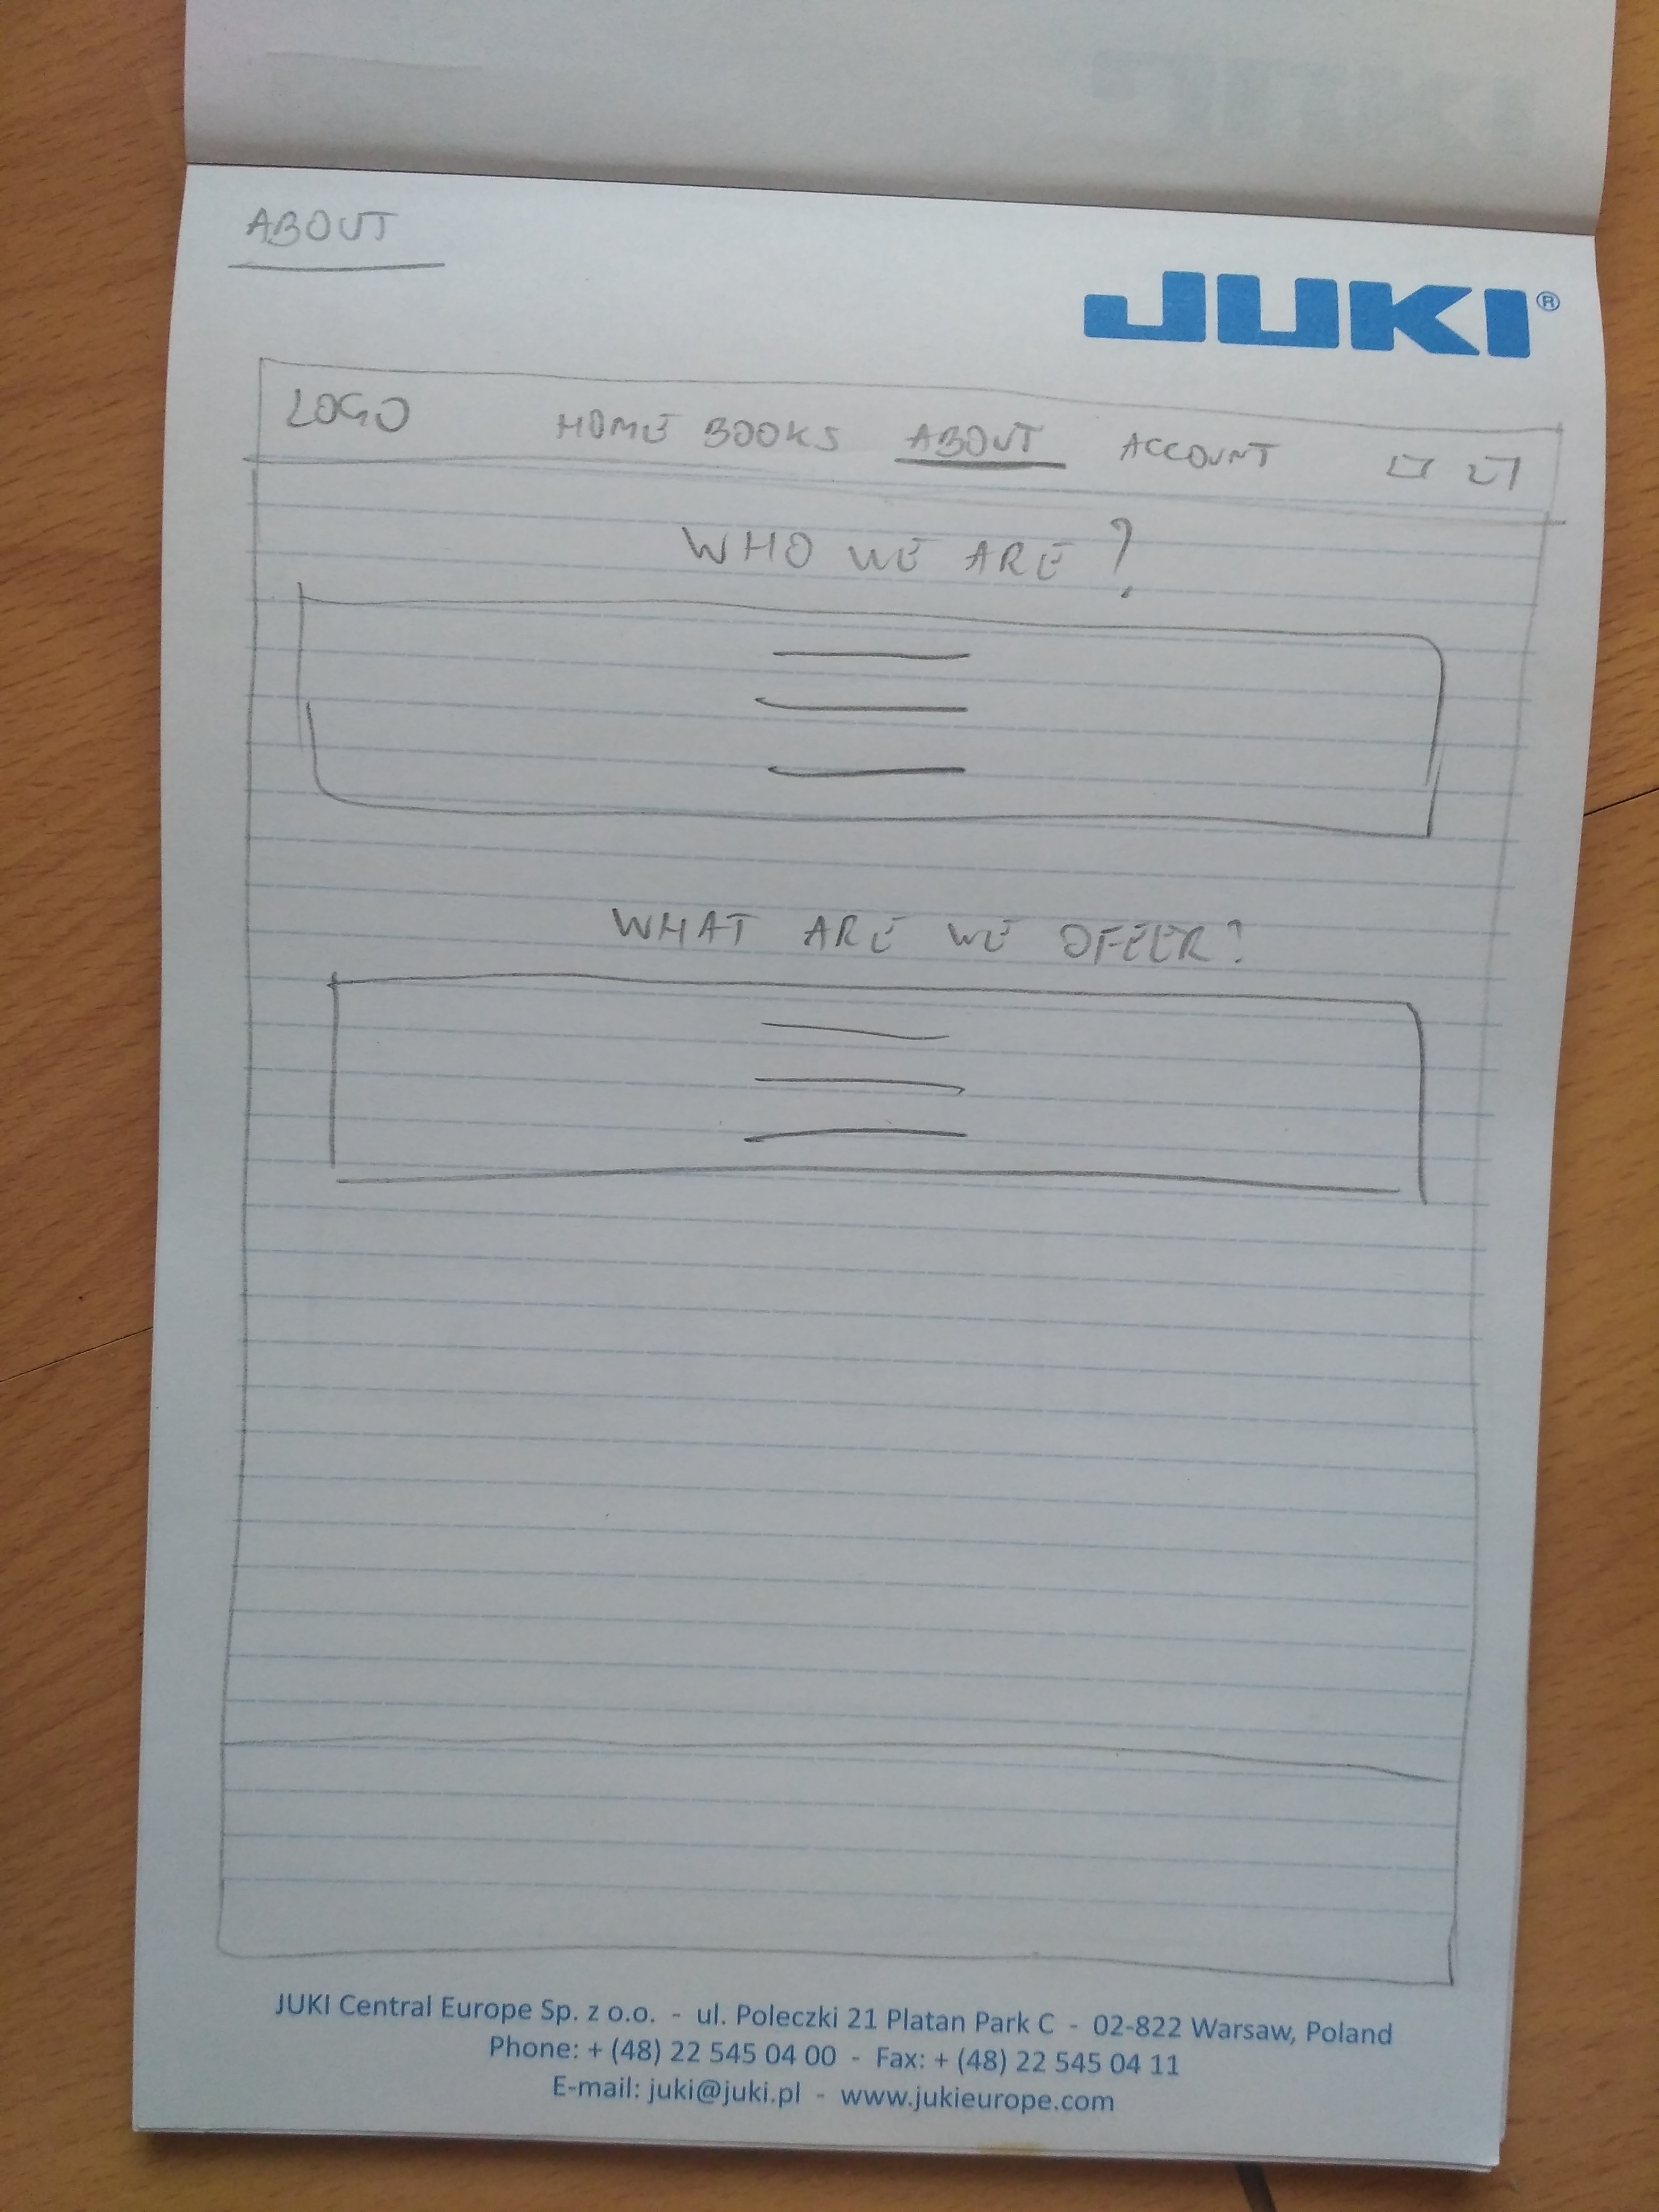 ABOUT
JUKI®
LOGO HOME BOOKS ABOUT ACCOUNT
WHO WE ARE?
WHAT ARE WE OFEER?
JUKI Central Europe Sp. z o.o. - ul. Poleczki 21 Platan Park C - 02-822 Warsaw, Poland
Phone: + (48) 22 545 04 00 - Fax: + (48) 22 545 04 11
E-mail: juki@juki.pl - www.jukieurope.com